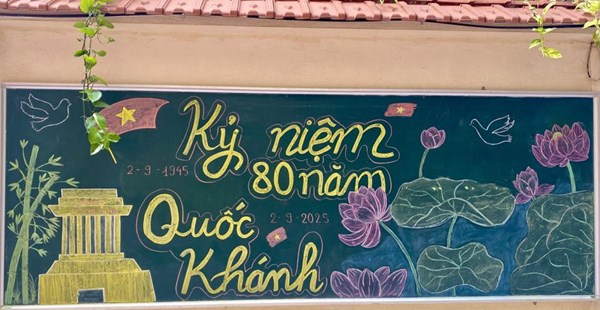 Kỷ niệm
2-9-1945
80 năm
Quốc
2-9-2025
Khánh